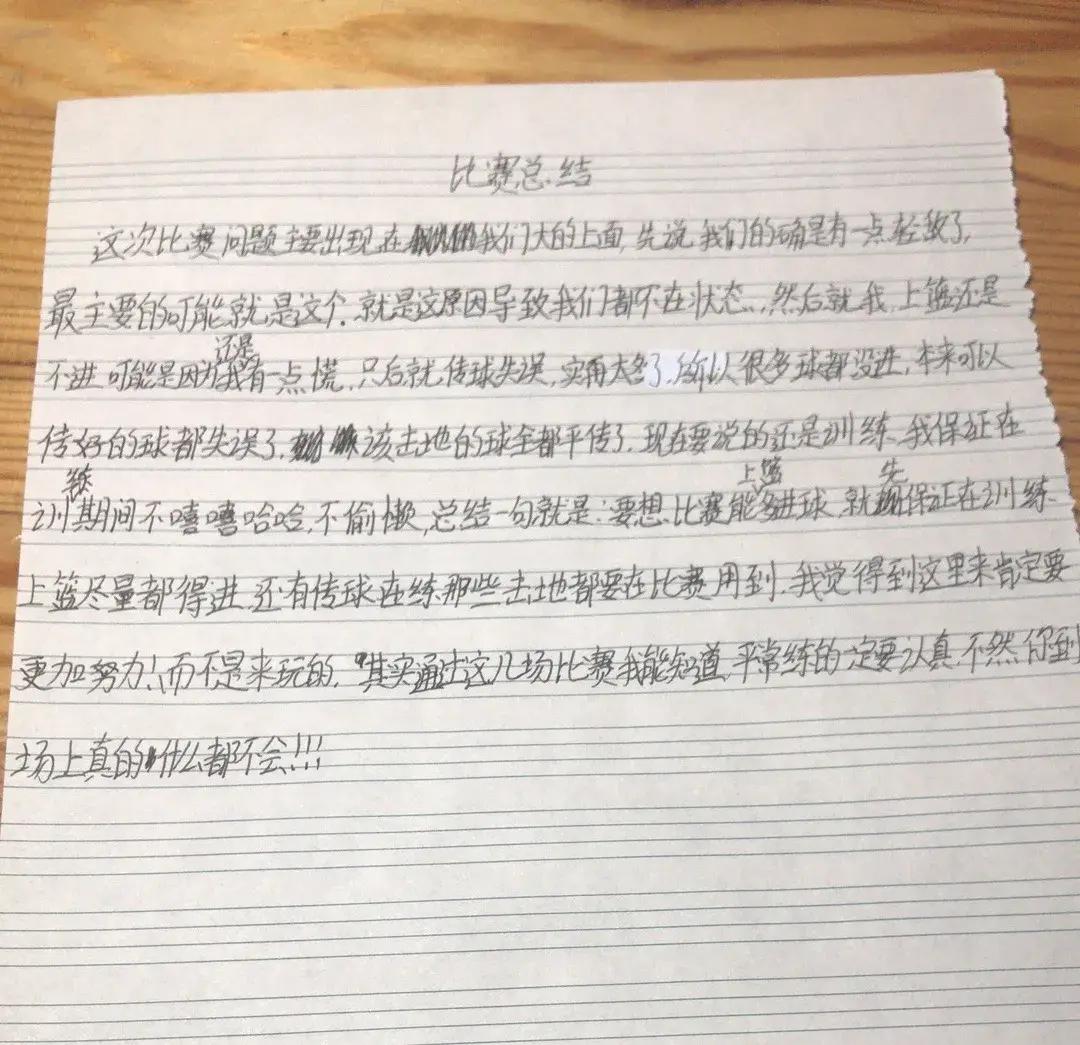 比赛总结
这次比赛问题主要出现在我们大的上面,先说我们的确是有一点轻敌了,
最主要的可能就是这个.就是这原因导致我们都不在状态..,然后就我,上篮还是
不进,可能是因为我还是有一点慌,只后就传球失误,实再太多了,所以很多球都没进,本来可以
传好的球都失误了,该击地的球全都平传了.现在要说的还是训练,我保证在
训练期间不嘻嘻哈哈,不偷懒,总结一句就是:要想比赛能上篮进球,就先保证在训练
上篮尽量都得进,还有传球,在练那些击地都要在比赛用到,我觉得到这里来肯定要
更加努力!而不是来玩的,其实通过这几场比赛我能知道,平常练的一定要认真,不然你到
场上真的什么都不会!!!